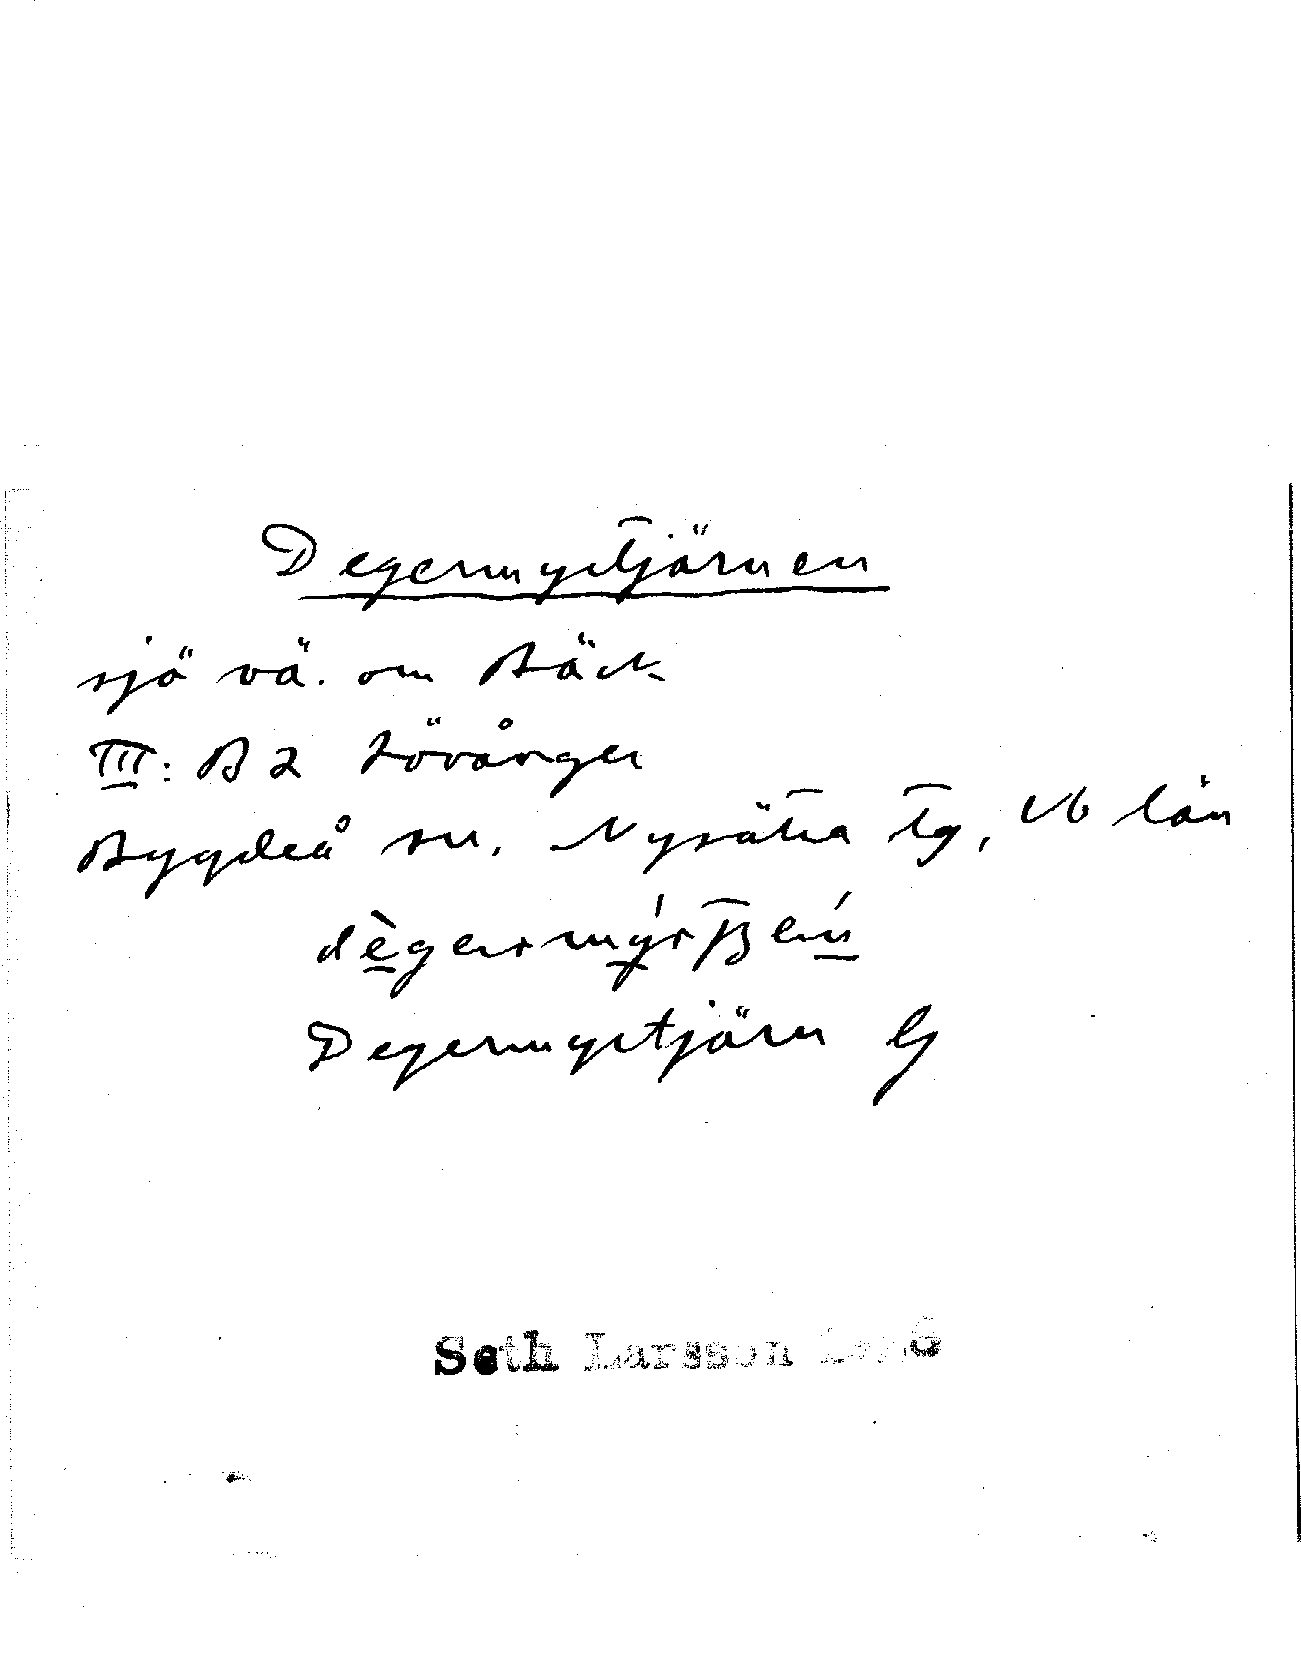 Degermyrtjärnen
sjö vä. om Bäck
III: B2 Lövånger
Bygdeå sn. Nysätra tg, Vb län
Degermyrtjärn G
Seth Larsson